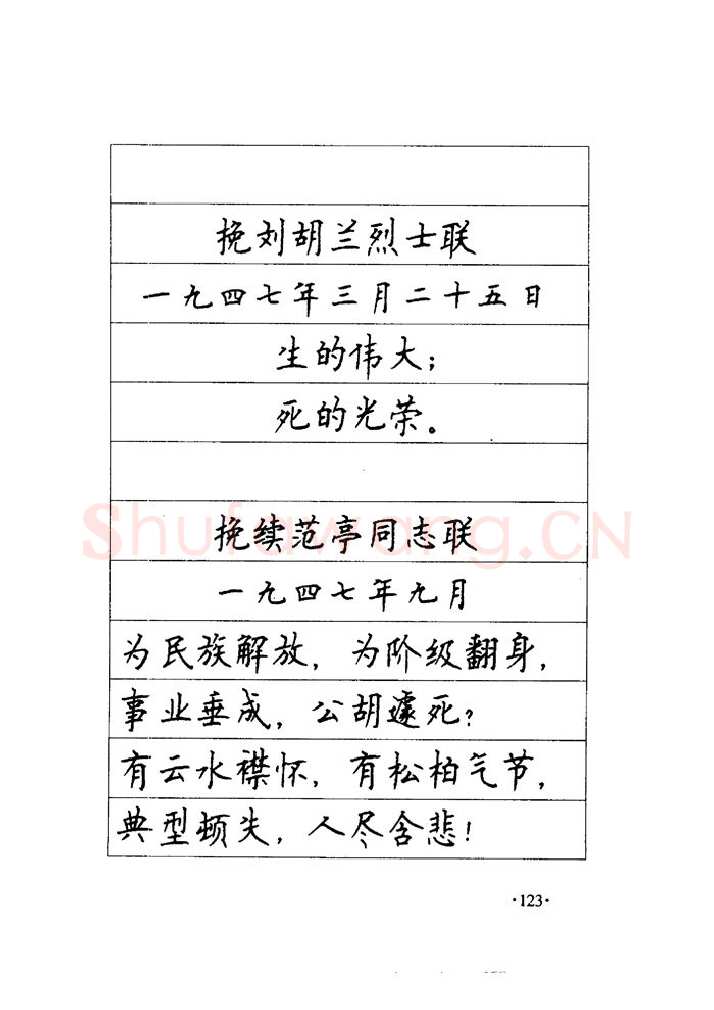 挽刘胡兰烈士联
一九四七年三月二十五日
生的伟大；
死的光荣。
挽续范亭同志联
一九四七年九月
为民族解放，为阶级翻身，
事业垂成，公胡遽死？
有云水襟怀，有松柏气节，
典型顿失，人尽含悲！
·123·
Shufawang.CN